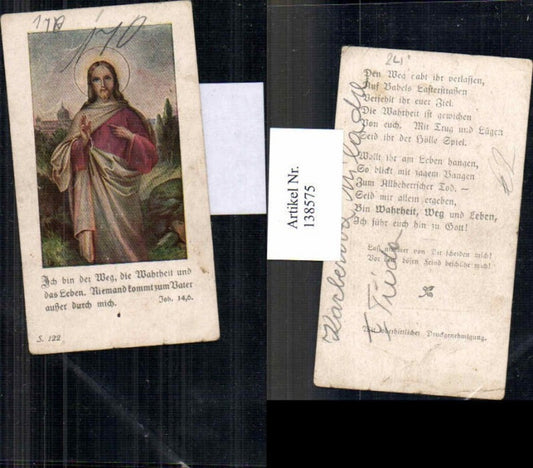 170
170
Ich bin der Weg, die Wahrheit und
das Leben. Niemand kommt zum Vater
außer durch mich. Joh. 14,6.
S. 122
Artikel Nr.
138575
241
Den Weg habt ihr verlassen,
Auf Babels Lasterstraßen
Verfehlt ihr euer Ziel.
Die Wahrheit ist gewichen
Von euch. Mit Trug und Lügen
Seid ihr der Hölle Spiel.
Wollt ihr am Leben hangen,
So blickt mit zagem Bangen
Zum Allbeherrscher Tod. —
Seid mir allein ergeben,
Bin Wahrheit, Weg und Leben,
Ich führ euch hin zu Gott!
Laß nimmer von Dir scheiden mich!
Vor bösen Feind beschütze mich!
Mit oberhirtlicher Druckgenehmigung.